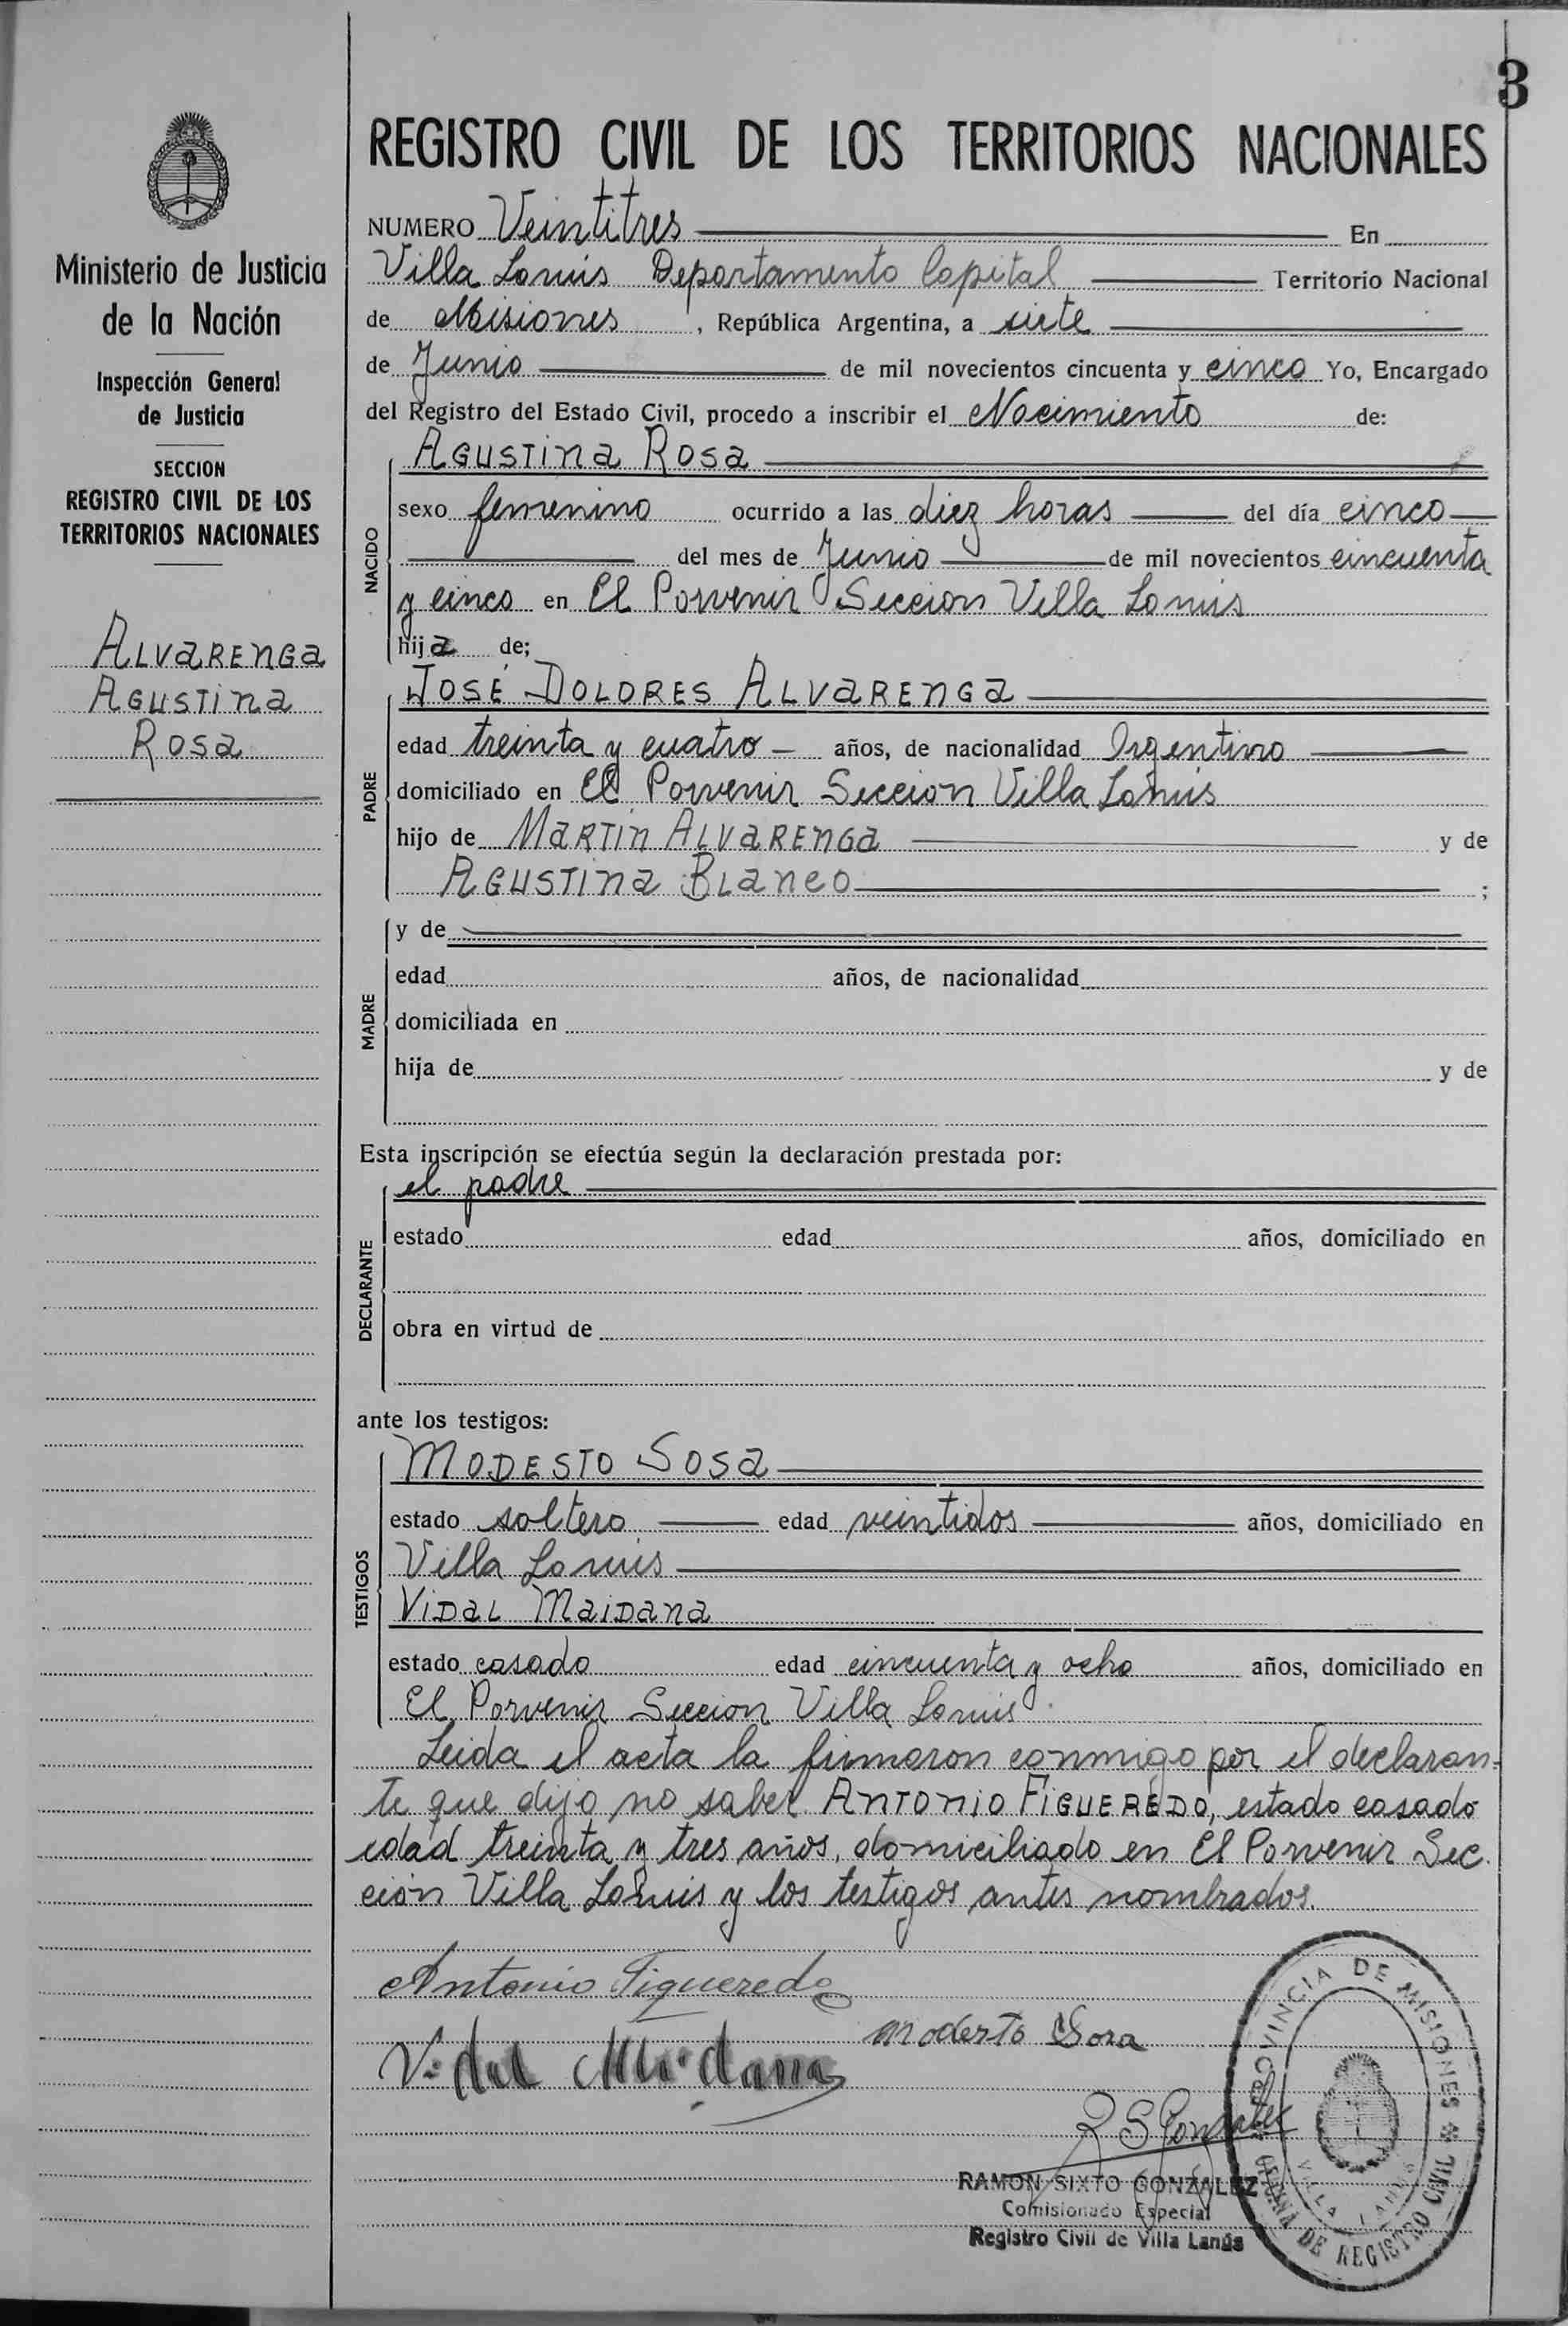 3
REGISTRO CIVIL DE LOS TERRITORIOS NACIONALES
Ministerio de Justicia
de la Nación
Inspección General
de Justicia
SECCION
REGISTRO CIVIL DE LOS
TERRITORIOS NACIONALES
ALVARENGA
AGUSTINA
ROSA
NUMERO Veintitres En
Villa Lanús Departamento Capital Territorio Nacional
de Misiones, República Argentina, a siete
de Junio de mil novecientos cincuenta y cinco Yo, Encargado
del Registro del Estado Civil, procedo a inscribir el Nacimiento de:
NACIDO
AGUSTINA ROSA
sexo femenino ocurrido a las diez horas del día cinco
del mes de Junio de mil novecientos cincuenta
y cinco en El Porvenir Seccion Villa Lanús
hija de;
PADRE
JOSÉ DOLORES ALVARENGA
edad treinta y cuatro años, de nacionalidad Argentino
domiciliado en El Porvenir Seccion Villa Lanús
hijo de MARTIN ALVARENGA y de
AGUSTINA BLANCO ;
MADRE
y de
edad años, de nacionalidad
domiciliada en
hija de y de
Esta inscripción se efectúa según la declaración prestada por:
DECLARANTE
el padre
estado edad años, domiciliado en
obra en virtud de
ante los testigos:
TESTIGOS
MODESTO SOSA
estado soltero edad veintidos años, domiciliado en
Villa Lanús
VIDAL MAIDANA
estado casado edad cincuenta y ocho años, domiciliado en
El Porvenir Seccion Villa Lanús.
Leida el acta la firmaron conmigo por el declaran-
te que dijo no saber ANTONIO FIGUEREDO, estado casado
edad treinta y tres años, domiciliado en El Porvenir Sec.
ción Villa Lanús y los testigos antes nombrados.
Antonio Figueredo
Modesto Sosa
Vidal Maidana
R S Gonzalez
RAMON SIXTO GONZALEZ
Comisionado Especial
Registro Civil de Villa Lanús
PROVINCIA DE MISIONES
OFICINA DE REGISTRO CIVIL
VILLA LANUS